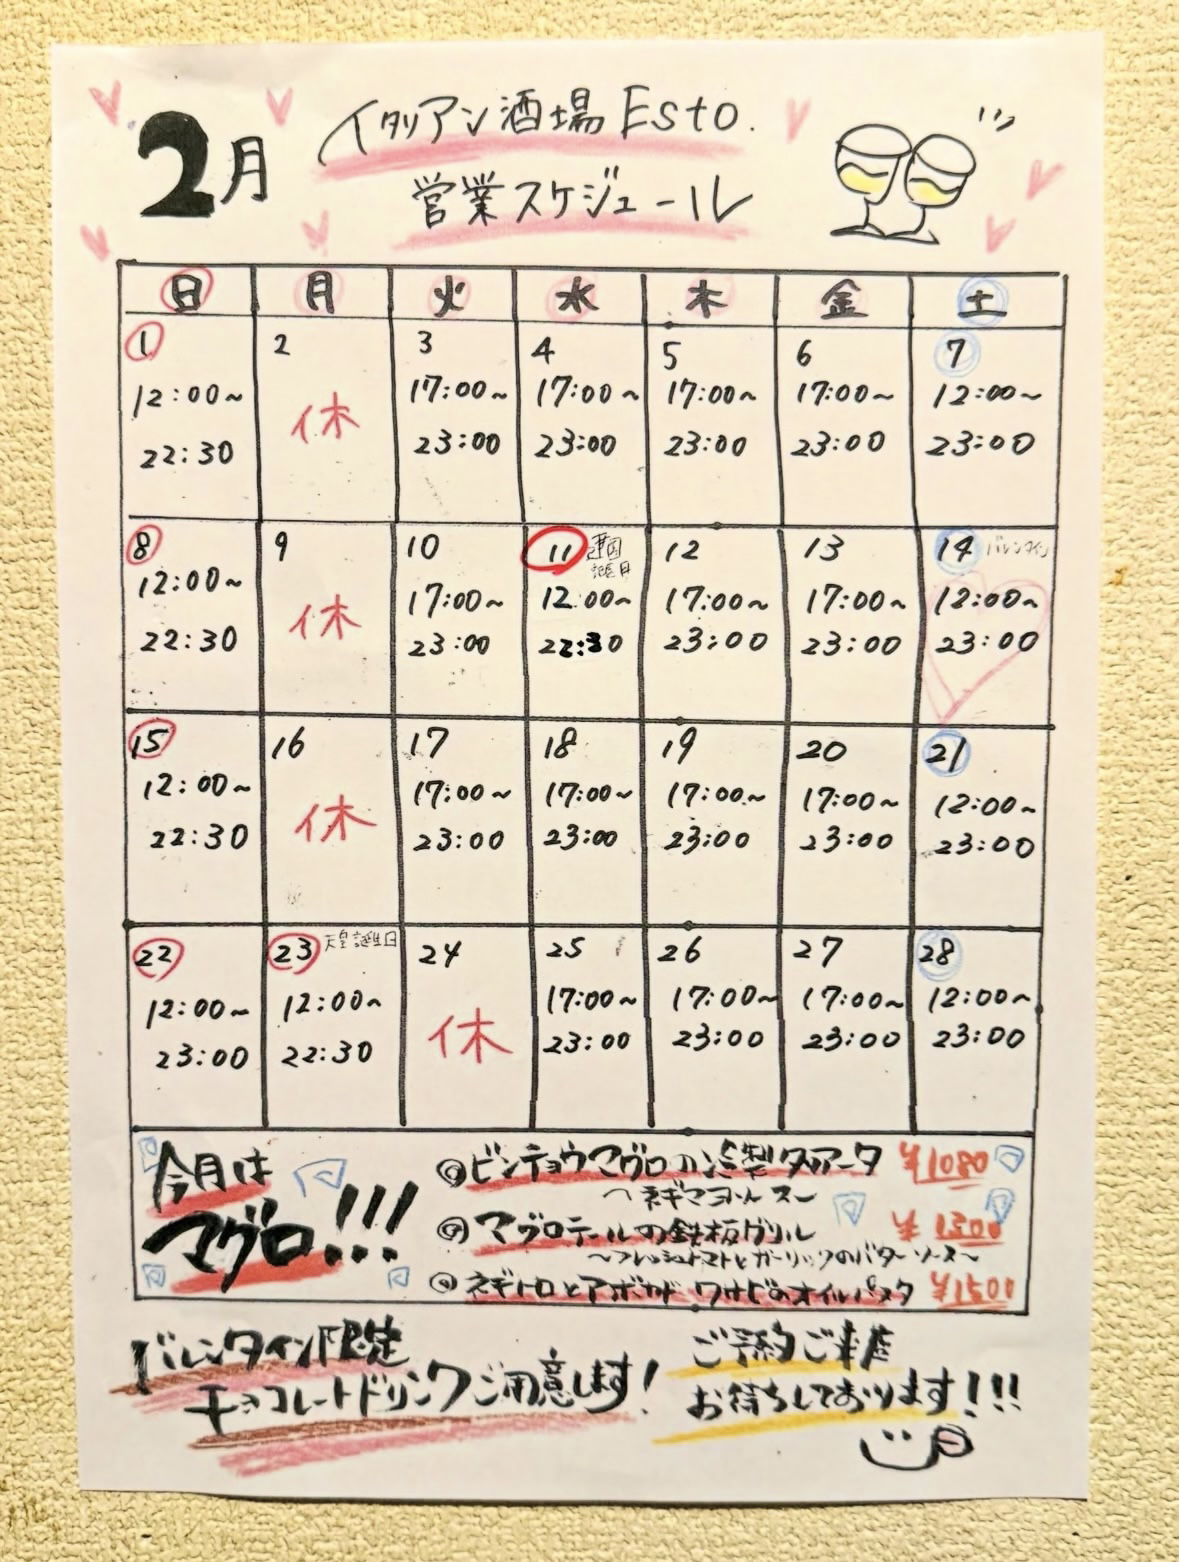 2月
イタリアン酒場 Esto.
営業スケジュール
日 月 火 水 木 金 土
1 2 3 4 5 6 7
12:00~ 休 17:00~ 17:00~ 17:00~ 17:00~ 12:00~
22:30 23:00 23:00 23:00 23:00 23:00
8 9 10 11 12 13 14 バレンタイン
12:00~ 休 17:00~ 12:00~ 17:00~ 17:00~ 12:00~
22:30 23:00 22:30 23:00 23:00 23:00
15 16 17 18 19 20 21
12:00~ 休 17:00~ 17:00~ 17:00~ 17:00~ 12:00~
22:30 23:00 23:00 23:00 23:00 23:00
22 23 天皇誕生日 24 25 26 27 28
12:00~ 12:00~ 休 17:00~ 17:00~ 17:00~ 12:00~
23:00 22:30 23:00 23:00 23:00 23:00
今月は
マグロ!!!
ビンチョウマグロの冷製タリアータ ¥1080
マグロテールの鉄板グリル ¥1300
~フレッシュトマトとガーリックのバターソース~
ネギトロとアボカド ワサビのオイルパスタ ¥1500
バレンタイン限定
チョコレートドリンクご用意します!
ご予約ご来店
お待ちしております!!!